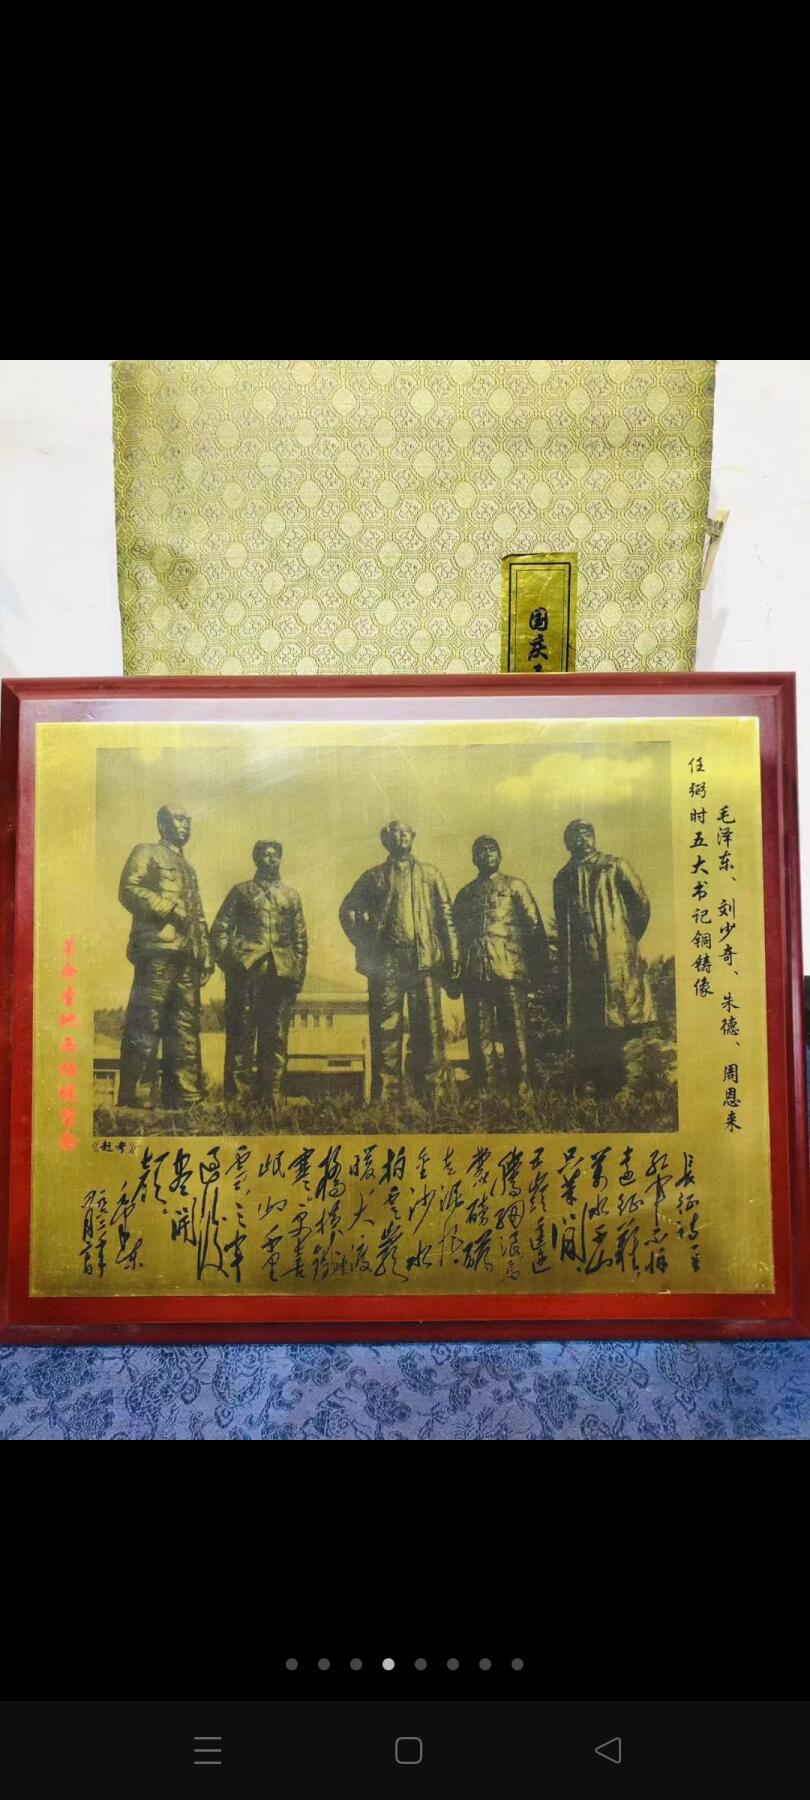 国庆
毛泽东、刘少奇、朱德、周恩来
任弼时五大书记铜铸像
革命圣地西柏坡留念
《赶考》
長征诗一首
红军不怕
遠征難,
萬水千山
只等闲。
五嶺逶迤
腾细浪,烏
蒙磅礴
走泥丸。
金沙水
拍雲崖
暖,大渡
橋横铁索
寒。更喜
岷山千里
雪,三军
過後
盡開
颜。
毛泽东